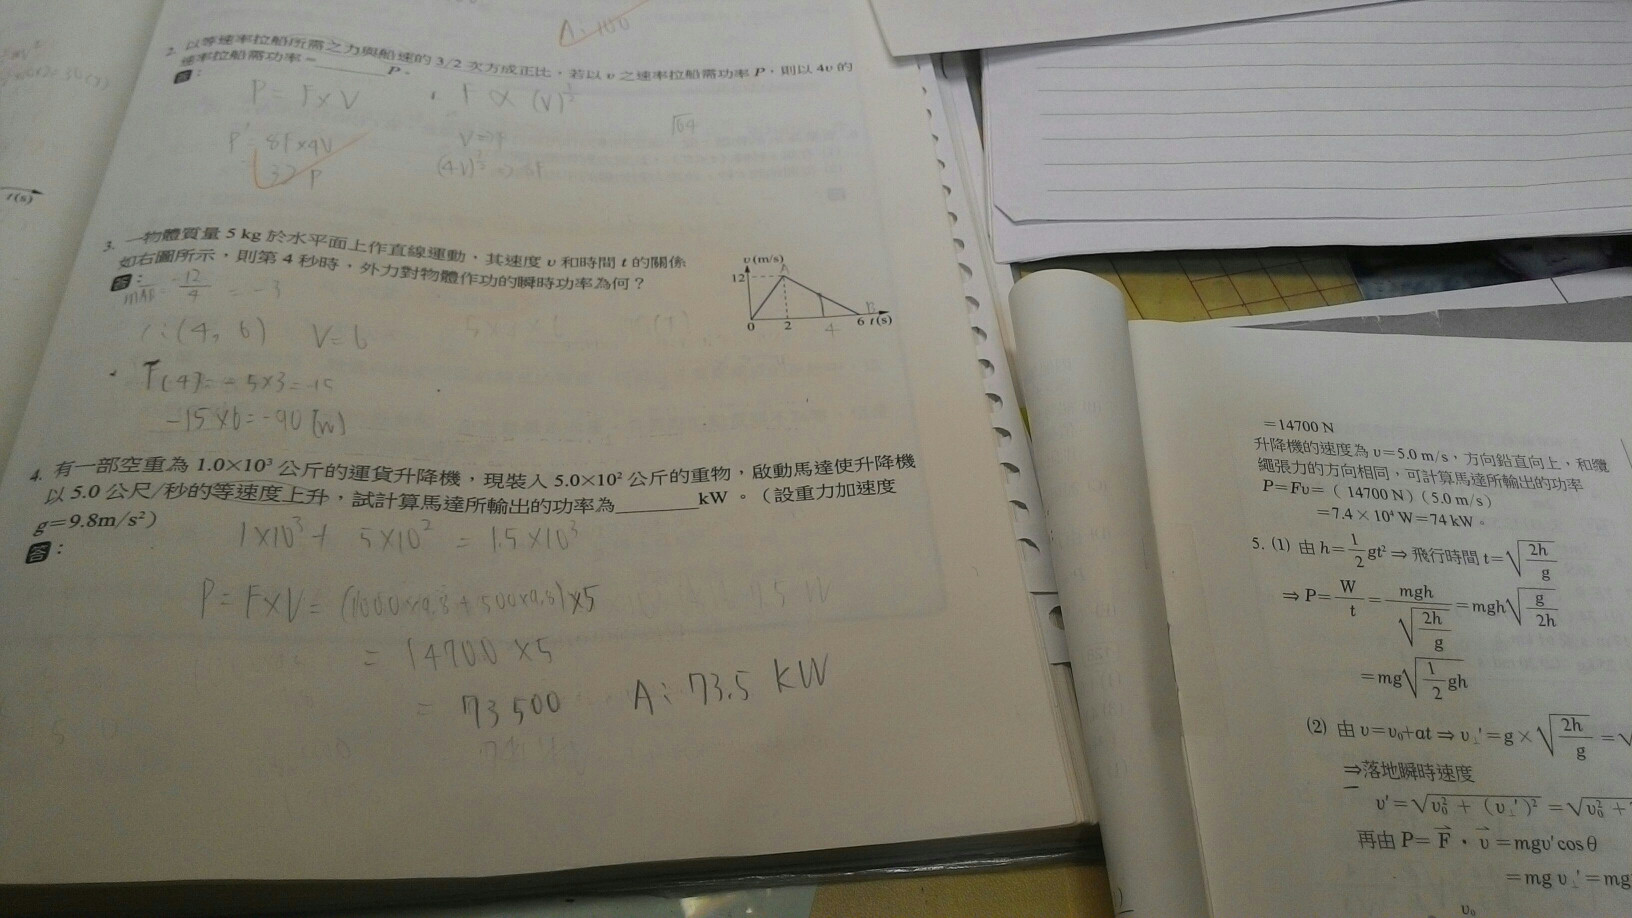 A:100
2. 以等速率拉船所需之力與船速的3/2次方成正比,若以υ之速率拉船需功率P,則以4υ的
速率拉船需功率=________P。
答:
P=F×V
F∝(V)
√64
P'=8F×4V
32P
t(s)
3. 一物體質量5 kg於水平面上作直線運動,其速度υ和時間t的關係
如右圖所示,則第4秒時,外力對物體作功的瞬時功率為何?
答:
-12/4 = -3
(4, 6) V=6
F(4)=-5×3=-15
-15×6=-90(W)
υ(m/s)
12
A
B
0 2 4 6 t(s)
4. 有一部空重為1.0×10³公斤的運貨升降機,現裝入5.0×10²公斤的重物,啟動馬達使升降機
以5.0公尺/秒的等速度上升,試計算馬達所輸出的功率為________kW。(設重力加速度
g=9.8m/s²)
答:
1×10³+5×10²=1.5×10³
P=F×V=(1000×9.8+500×9.8)×5
=14700×5
=73500
A:73.5 kW
=14700 N
升降機的速度為υ=5.0 m/s,方向鉛直向上,和纜
繩張力的方向相同,可計算馬達所輸出的功率
P=Fυ=(14700 N)(5.0 m/s)
=7.4×10⁴ W=74 kW。
5. (1) 由h=1/2gt²⇒飛行時間t=√(2h/g)
⇒P=W/t=mgh/√(2h/g)=mgh√(g/2h)
=mg√(1/2gh)
(2) 由υ=υ₀+at⇒υ⊥'=g×√(2h/g)=√
⇒落地瞬時速度
υ'=√(υ₀²+(υ⊥')²)=√υ₀²+
再由P=F⃗·υ⃗=mgυ'cosθ
=mgυ⊥'=mg
υ₀